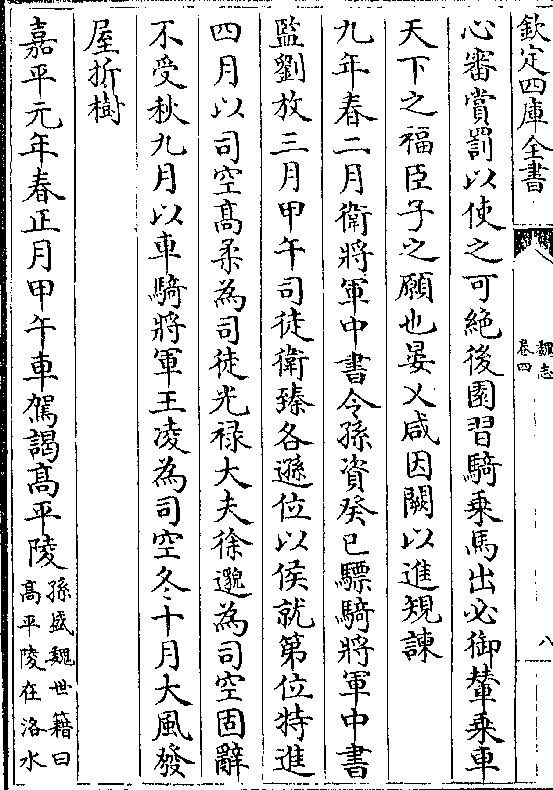 欽定四庫全書
魏志
卷四
八
心審賞罰以使之可絶後園習騎乗馬出必御輦乗車
天下之福臣子之願也晏乂咸因闕以進規諫
九年春二月衛將軍中書令孫資癸巳驃騎將軍中書
監劉放三月甲午司徒衛臻各遜位以侯就第位特進
四月以司空髙柔為司徒光禄大夫徐邈為司空固辭
不受秋九月以車騎將軍王凌為司空冬十月大風發
屋折樹
嘉平元年春正月甲午車駕謁髙平陵
孫盛魏世籍曰
髙平陵在洛水